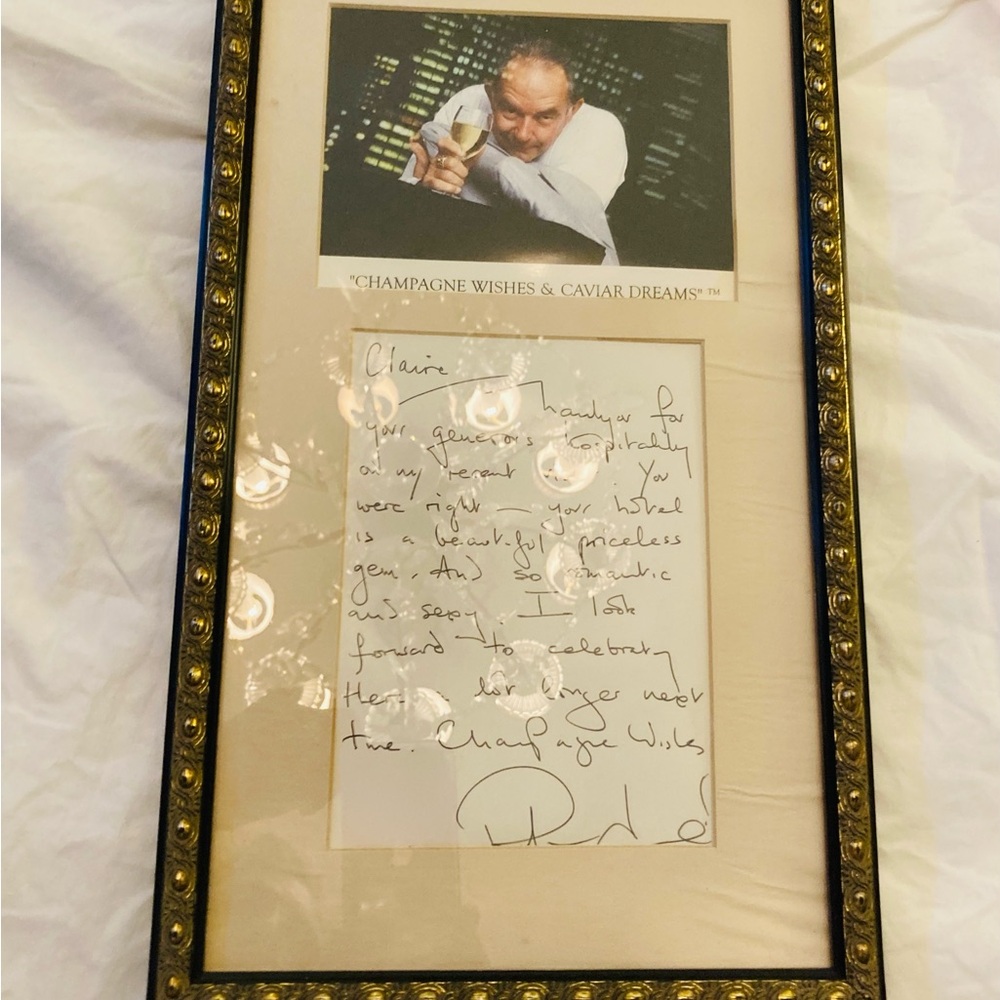 "CHAMPAGNE WISHES & CAVIAR DREAMS" ™
Claire
Thankyou for
your generous hospitality
on my recent You
were right — your hotel
is a beautiful priceless
gem. And so romantic
and sexy. I look
forward to celebrating
there longer next
time. Champagne Wishes